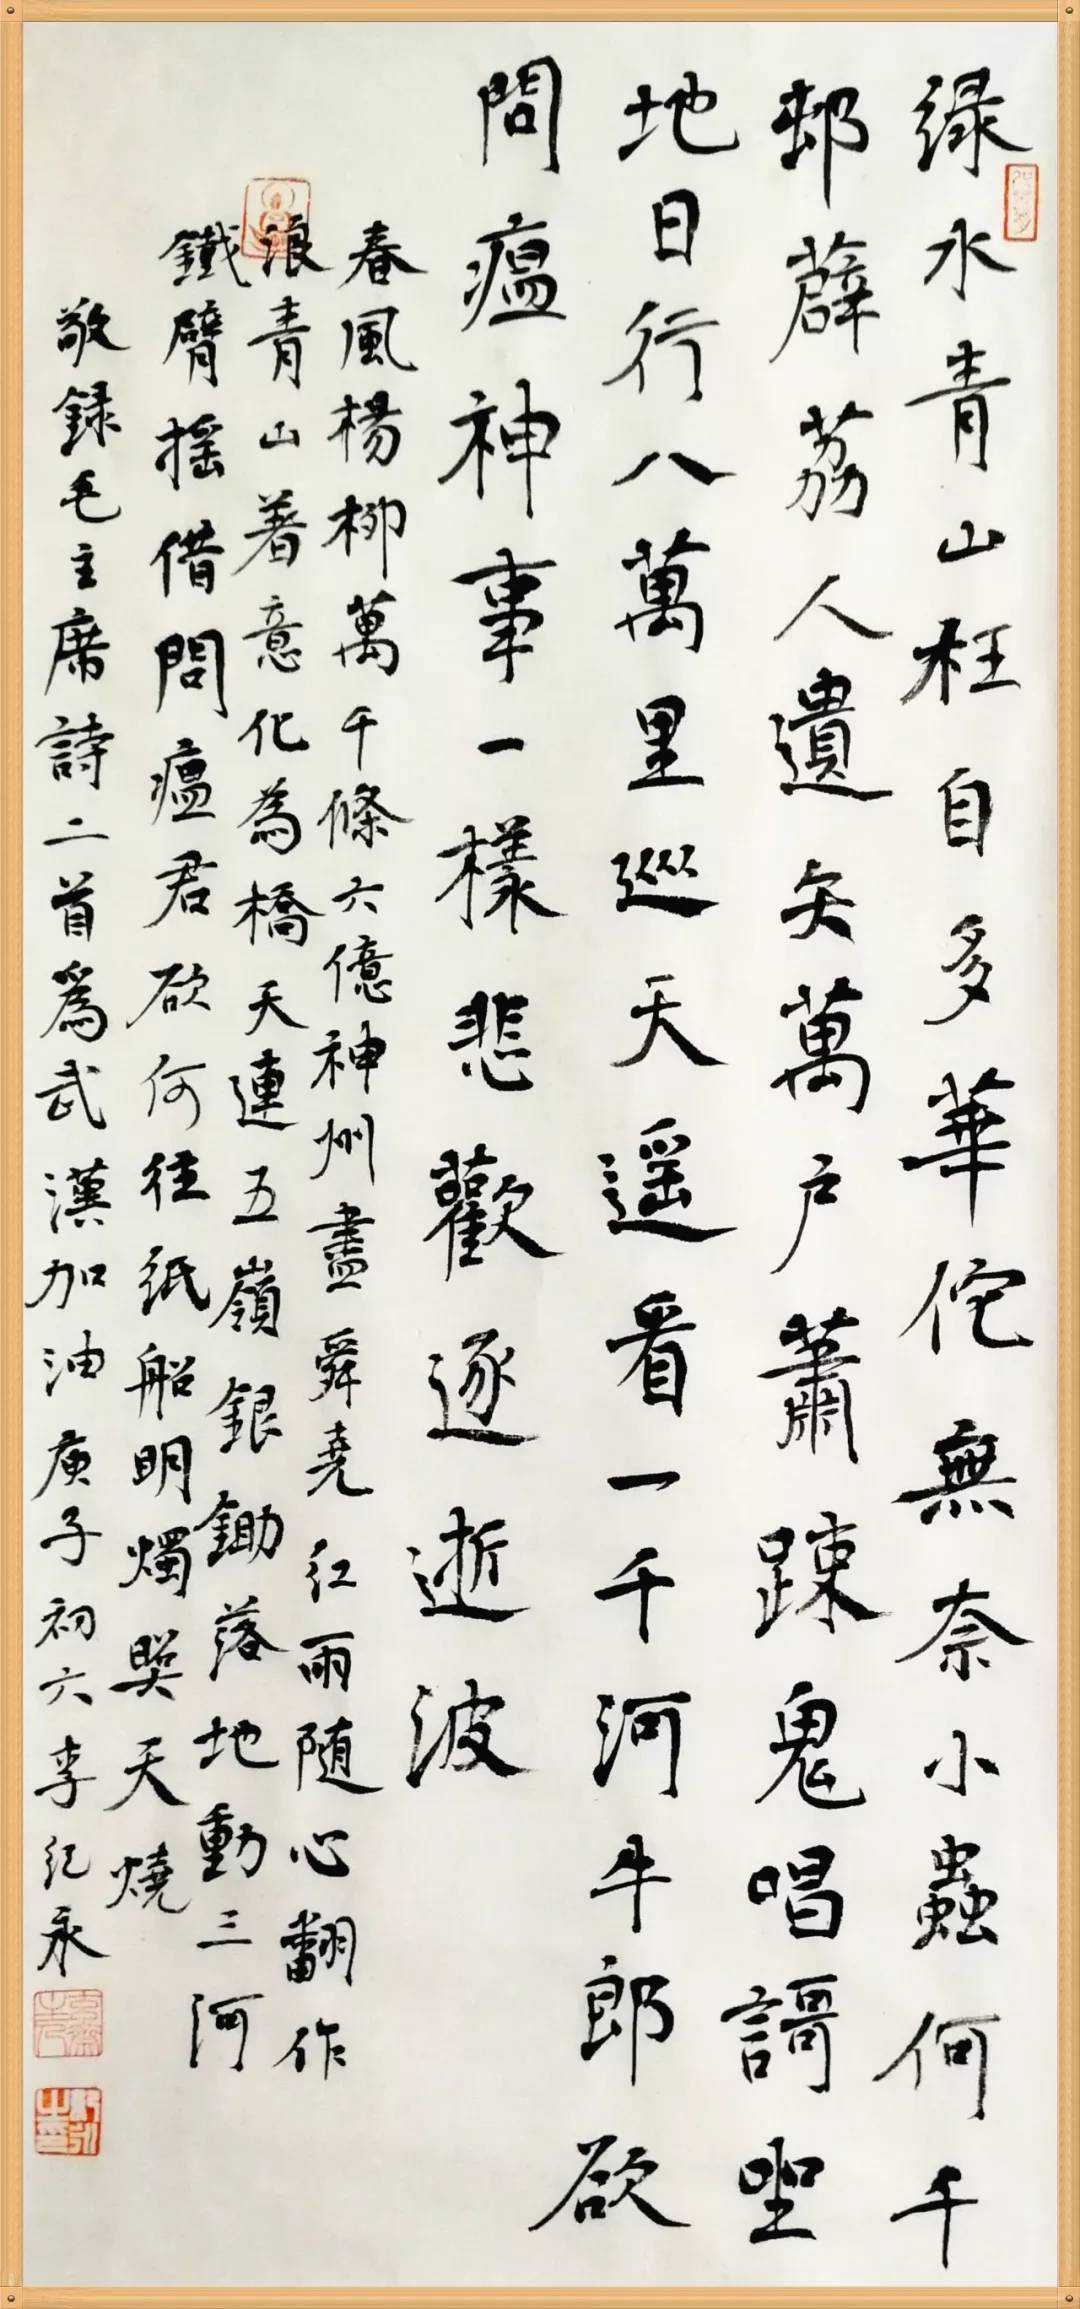 緑水青山枉自多華佗無奈小蟲何千
邨薜荔人遺矢萬户蕭踈鬼唱謌
地日行八萬里巡天遥看一千河牛郎欲
問瘟神事一樣悲歡逐逝波
春風楊柳萬千條六億神州盡舜堯红雨随心翻作
浪青山着意化為橋天連五嶺銀鋤落地動三河
鐵臂摇借問瘟君欲何往纸船明燭照天燒
敬録毛主席詩二首為武漢加油庚子初六李纪永